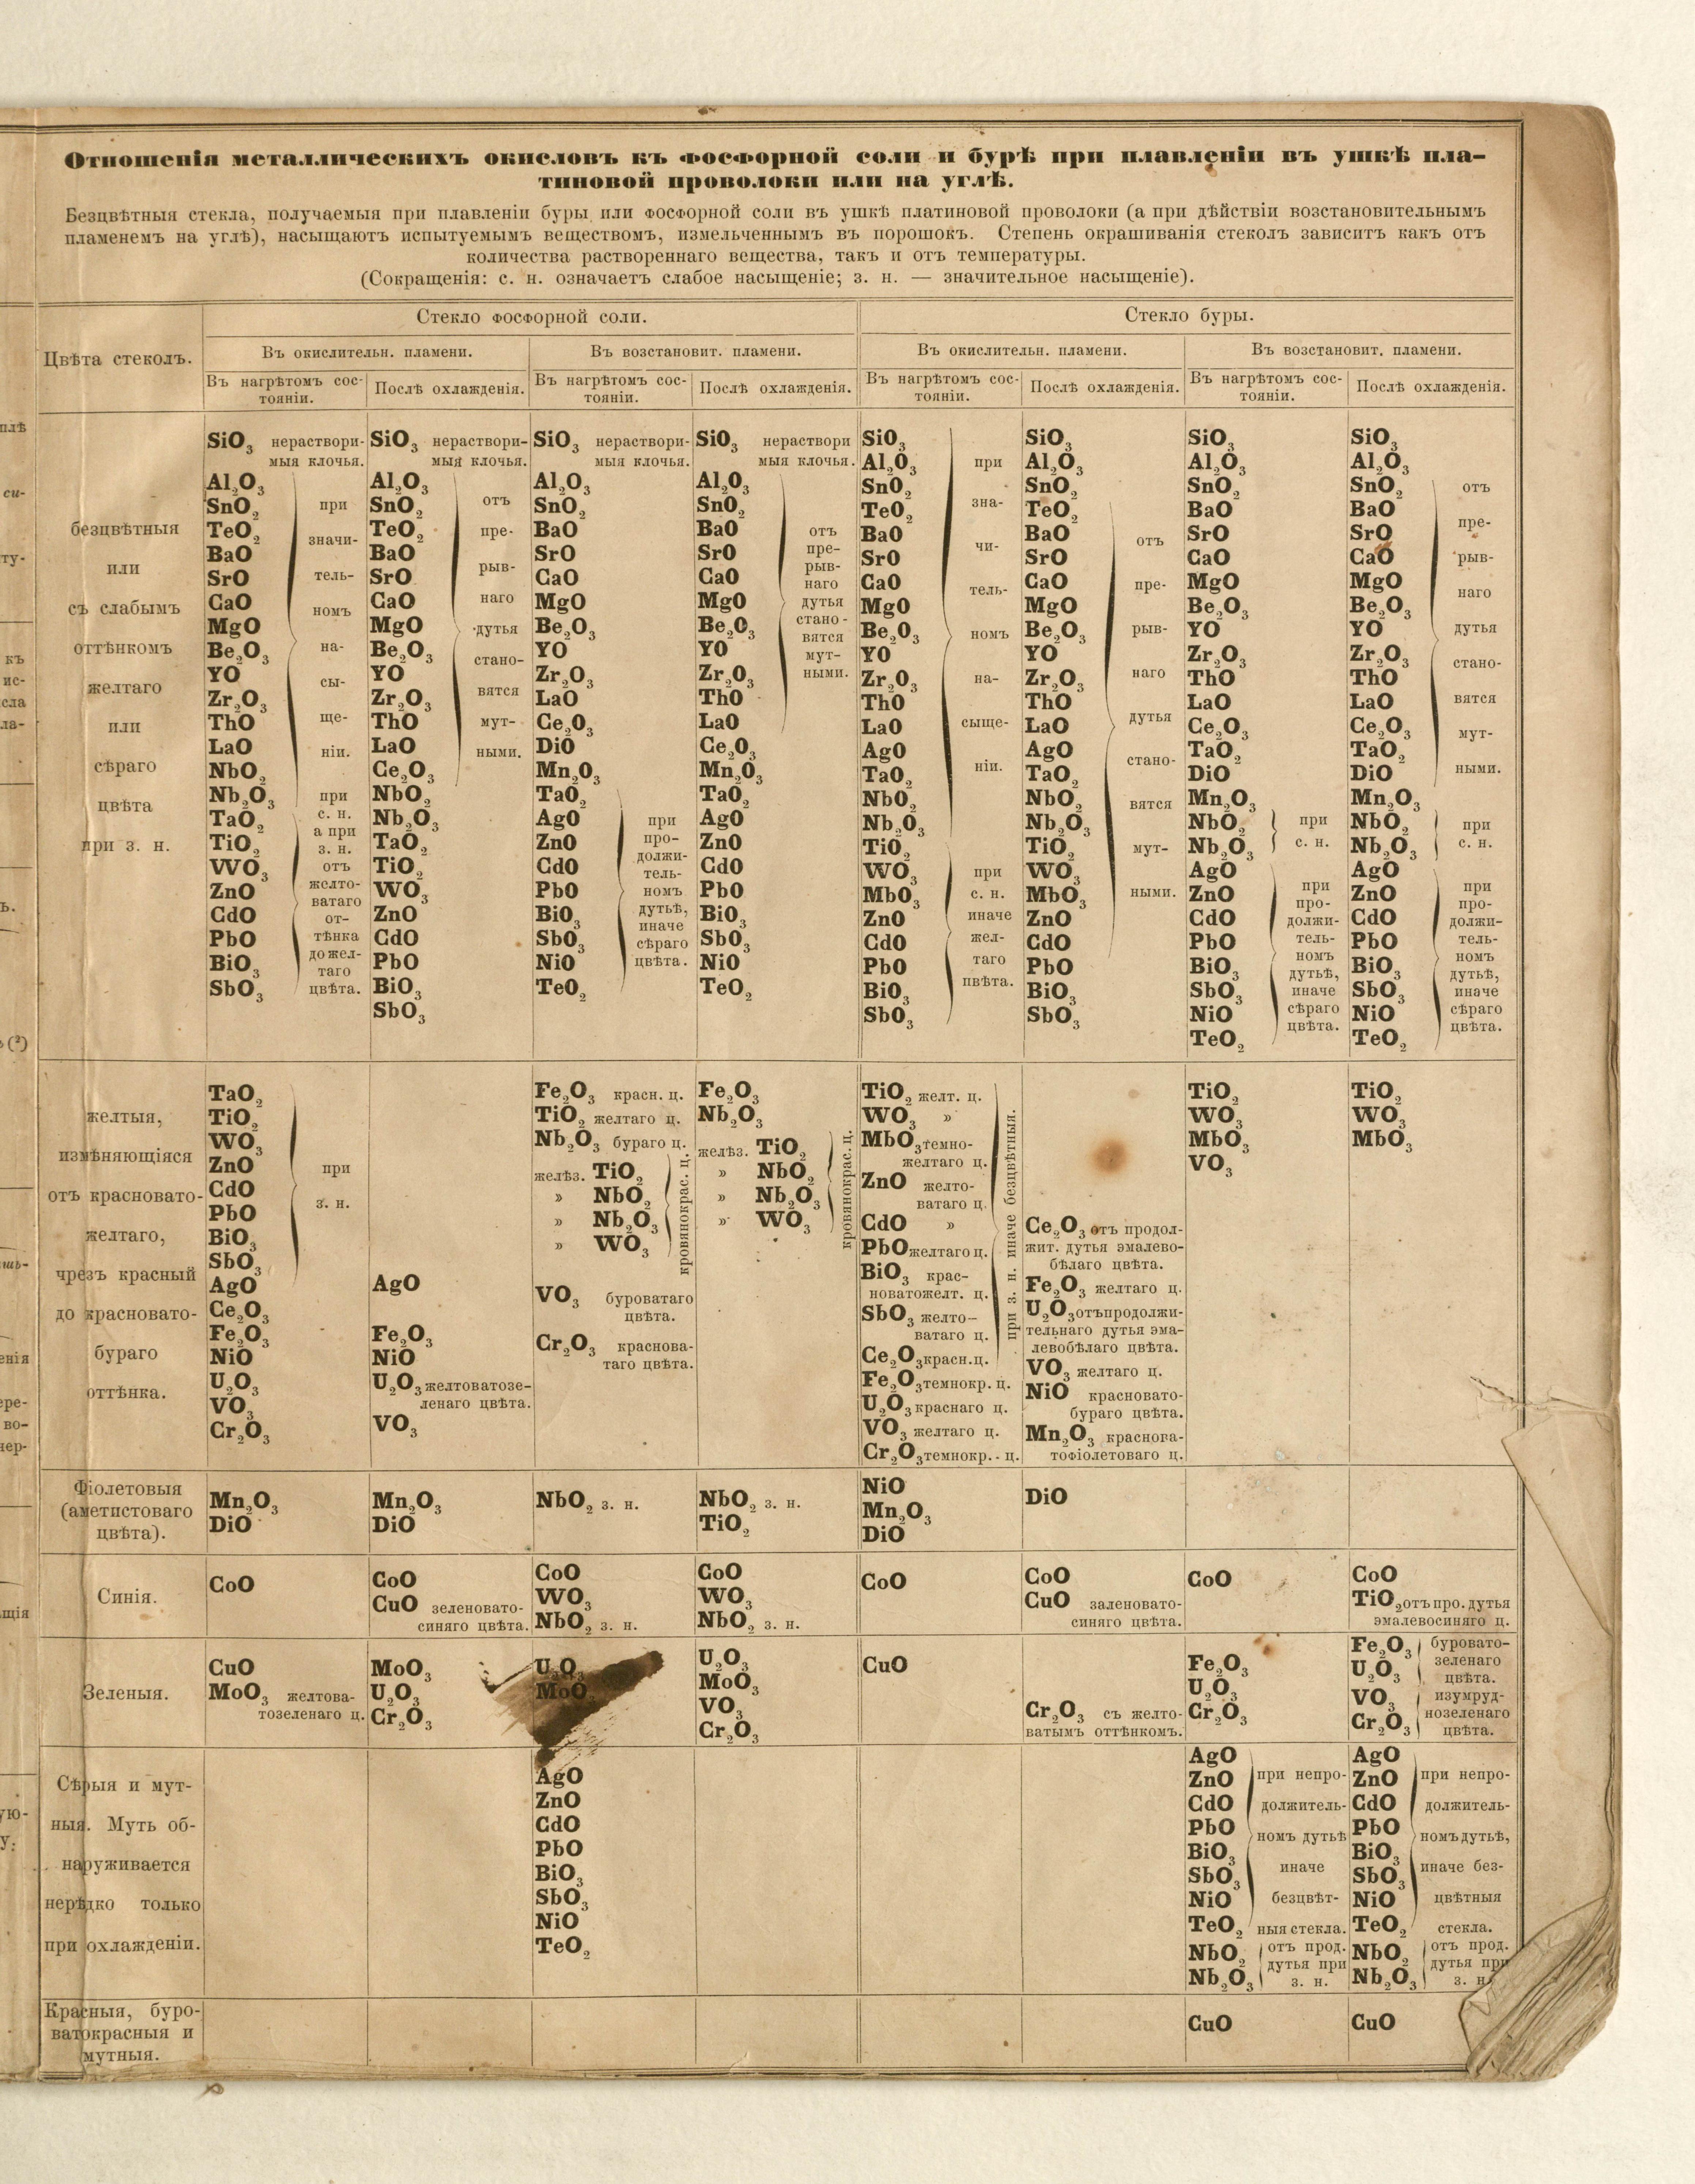 Отношенія металлическихъ окисловъ къ фосфорной соли и бурѣ при плавленіи въ ушкѣ пла-
тиновой проволоки или на углѣ.
Безцвѣтныя стекла, получаемыя при плавленіи буры или фосфорной соли въ ушкѣ платиновой проволоки (а при дѣйствіи возстановительнымъ
пламенемъ на углѣ), насыщаютъ испытуемымъ веществомъ, измельченнымъ въ порошокъ. Степень окрашиванія стеколъ зависитъ какъ отъ
количества раствореннаго вещества, такъ и отъ температуры.
(Сокращенія: с. н. означаетъ слабое насыщеніе; з. н. — значительное насыщеніе).
Цвѣта стеколъ.
Стекло фосфорной соли.
Стекло буры.
Въ окислительн. пламени.
Въ возстановит. пламени.
Въ окислительн. пламени.
Въ возстановит. пламени.
Въ нагрѣтомъ сос-
тояніи.
Послѣ охлажденія.
Въ нагрѣтомъ сос-
тояніи.
Послѣ охлажденія.
Въ нагрѣтомъ сос-
тояніи.
Послѣ охлажденія.
Въ нагрѣтомъ сос-
тояніи.
Послѣ охлажденія.
безцвѣтныя
или
съ слабымъ
оттѣнкомъ
желтаго
или
сѣраго
цвѣта
при з. н.
SiO₃ нераствори-
мыя клочья.
Al₂O₃
SnO₂
TeO₂
BaO
SrO
CaO
MgO
Be₂O₃
YO
Zr₂O₃
ThO
LaO
NbO₂
Nb₂O₃
TaO₂
TiO₂
WO₃
ZnO
CdO
PbO
BiO₃
SbO₃
при
значи-
тель-
номъ
на-
сы-
ще-
ніи.
при
с. н.
а при
з. н.
отъ
желто-
ватаго
от-
тѣнка
до жел-
таго
цвѣта.
SiO₃ нераствори-
мыя клочья.
Al₂O₃
SnO₂
TeO₂
BaO
SrO
CaO
MgO
Be₂O₃
YO
Zr₂O₃
ThO
LaO
Ce₂O₃
NbO₂
Nb₂O₃
TaO₂
TiO₂
WO₃
ZnO
CdO
PbO
BiO₃
SbO₃
отъ
пре-
рыв-
наго
дутья
стано-
вятся
мут-
ными.
SiO₃ нераствори-
мыя клочья.
Al₂O₃
SnO₂
BaO
SrO
CaO
MgO
Be₂O₃
YO
Zr₂O₃
LaO
Ce₂O₃
DiO
Mn₂O₃
TaO₂
AgO
ZnO
CdO
PbO
BiO₃
SbO₃
NiO
TeO₂
при
про-
должи-
тель-
номъ
дутьѣ,
иначе
сѣраго
цвѣта.
SiO₃ нераствори
мыя клочья.
Al₂O₃
SnO₂
BaO
SrO
CaO
MgO
Be₂O₃
YO
Zr₂O₃
ThO
LaO
Ce₂O₃
Mn₂O₃
TaO₂
AgO
ZnO
CdO
PbO
BiO₃
SbO₃
NiO
TeO₂
отъ
пре-
рыв-
наго
дутья
стано-
вятся
мут-
ными.
SiO₃
Al₂O₃
SnO₂
TeO₂
BaO
SrO
CaO
MgO
Be₂O₃
YO
Zr₂O₃
ThO
LaO
AgO
TaO₂
NbO₂
Nb₂O₃
TiO₂
WO₃
MbO₃
ZnO
CdO
PbO
BiO₃
SbO₃
при
зна-
чи-
тель-
номъ
на-
сыще-
ніи.
при
с. н.
иначе
жел-
таго
цвѣта.
SiO₃
Al₂O₃
SnO₂
TeO₂
BaO
SrO
CaO
MgO
Be₂O₃
YO
Zr₂O₃
ThO
LaO
AgO
TaO₂
NbO₂
Nb₂O₃
TiO₂
WO₃
MbO₃
ZnO
CdO
PbO
BiO₃
SbO₃
отъ
пре-
рыв-
наго
дутья
стано-
вятся
мут-
ными.
SiO₃
Al₂O₃
SnO₂
BaO
SrO
CaO
MgO
Be₂O₃
YO
Zr₂O₃
ThO
LaO
Ce₂O₃
TaO₂
DiO
Mn₂O₃
NbO₂
Nb₂O₃
AgO
ZnO
CdO
PbO
BiO₃
SbO₃
NiO
TeO₂
при
с. н.
при
про-
должи-
тель-
номъ
дутьѣ,
иначе
сѣраго
цвѣта.
SiO₃
Al₂O₃
SnO₂
BaO
SrO
CaO
MgO
Be₂O₃
YO
Zr₂O₃
ThO
LaO
Ce₂O₃
TaO₂
DiO
Mn₂O₃
NbO₂
Nb₂O₃
AgO
ZnO
CdO
PbO
BiO₃
SbO₃
NiO
TeO₂
отъ
пре-
рыв-
наго
дутья
стано-
вятся
мут-
ными.
при
с. н.
при
про-
должи-
тель-
номъ
дутьѣ,
иначе
сѣраго
цвѣта.
желтыя,
измѣняющіяся
отъ красновато-
желтаго,
чрезъ красный
до красновато-
бураго
оттѣнка.
TaO₂
TiO₂
WO₃
ZnO
CdO
PbO
BiO₃
SbO₃
AgO
Ce₂O₃
Fe₂O₃
NiO
U₂O₃
VO₃
Cr₂O₃
при
з. н.
AgO
Fe₂O₃
NiO
U₂O₃ желтоватозе-
ленаго цвѣта.
VO₃
Fe₂O₃ красн. ц.
TiO₂ желтаго ц.
Nb₂O₃ бураго ц.
желѣз. TiO₂
» NbO₂
» Nb₂O₃
» WO₃
кровянокрас. ц.
VO₃ буроватаго
цвѣта.
Cr₂O₃ краснова-
таго цвѣта.
Fe₂O₃
Nb₂O₃
желѣз. TiO₂
» NbO₂
» Nb₂O₃
» WO₃
кровянокрас. ц.
TiO₂ желт. ц.
WO₃ »
MbO₃ темно-
желтаго ц.
ZnO желто-
ватаго ц.
CdO »
PbO желтаго ц.
BiO₃ крас-
новатожелт. ц.
SbO₃ желто-
ватаго ц.
при з. н. иначе безцвѣтныя.
Ce₂O₃ красн. ц.
Fe₂O₃ темнокр. ц.
U₂O₃ краснаго ц.
VO₃ желтаго ц.
Cr₂O₃ темнокр. ц.
Ce₂O₃ отъ продол-
жит. дутья эмалево-
бѣлаго цвѣта.
Fe₂O₃ желтаго ц.
U₂O₃ отъ продолжи-
тельнаго дутья эма-
левобѣлаго цвѣта.
VO₃ желтаго ц.
NiO красновато-
бураго цвѣта.
Mn₂O₃ краснова-
тофіолетоваго ц.
TiO₂
WO₃
MbO₃
VO₃
TiO₂
WO₃
MbO₃
Фіолетовыя
(аметистоваго
цвѣта).
Mn₂O₃
DiO
Mn₂O₃
DiO
NbO₂ з. н.
NbO₂ з. н.
TiO₂
NiO
Mn₂O₃
DiO
DiO
Синія.
CoO
CoO
CuO зеленовато-
синяго цвѣта.
CoO
WO₃
NbO₂ з. н.
CoO
WO₃
NbO₂ з. н.
CoO
CoO
CuO заленовато-
синяго цвѣта.
CoO
CoO
TiO₂ отъ про. дутья
эмалевосиняго ц.
Зеленыя.
CuO
MoO₃ желтова-
тозеленаго ц.
MoO₃
U₂O₃
Cr₂O₃
U₂O₃
MoO₃
U₂O₃
MoO₃
VO₃
Cr₂O₃
CuO
Cr₂O₃ съ желто-
ватымъ оттѣнкомъ.
Fe₂O₃
U₂O₃
Cr₂O₃
Fe₂O₃
U₂O₃
VO₃
Cr₂O₃
буровато-
зеленаго
цвѣта.
изумруд-
нозеленаго
цвѣта.
Сѣрыя и мут-
ныя. Муть об-
наруживается
нерѣдко только
при охлажденіи.
AgO
ZnO
CdO
PbO
BiO₃
SbO₃
NiO
TeO₂
AgO
ZnO
CdO
PbO
BiO₃
SbO₃
NiO
TeO₂
NbO₂
Nb₂O₃
при непро-
должитель-
номъ дутьѣ
иначе
безцвѣт-
ныя стекла.
отъ прод.
дутья при
з. н.
AgO
ZnO
CdO
PbO
BiO₃
SbO₃
NiO
TeO₂
NbO₂
Nb₂O₃
при непро-
должитель-
номъ дутьѣ,
иначе без-
цвѣтныя
стекла.
отъ прод.
дутья при
з. н.
Красныя, буро-
ватокрасныя и
мутныя.
CuO
CuO